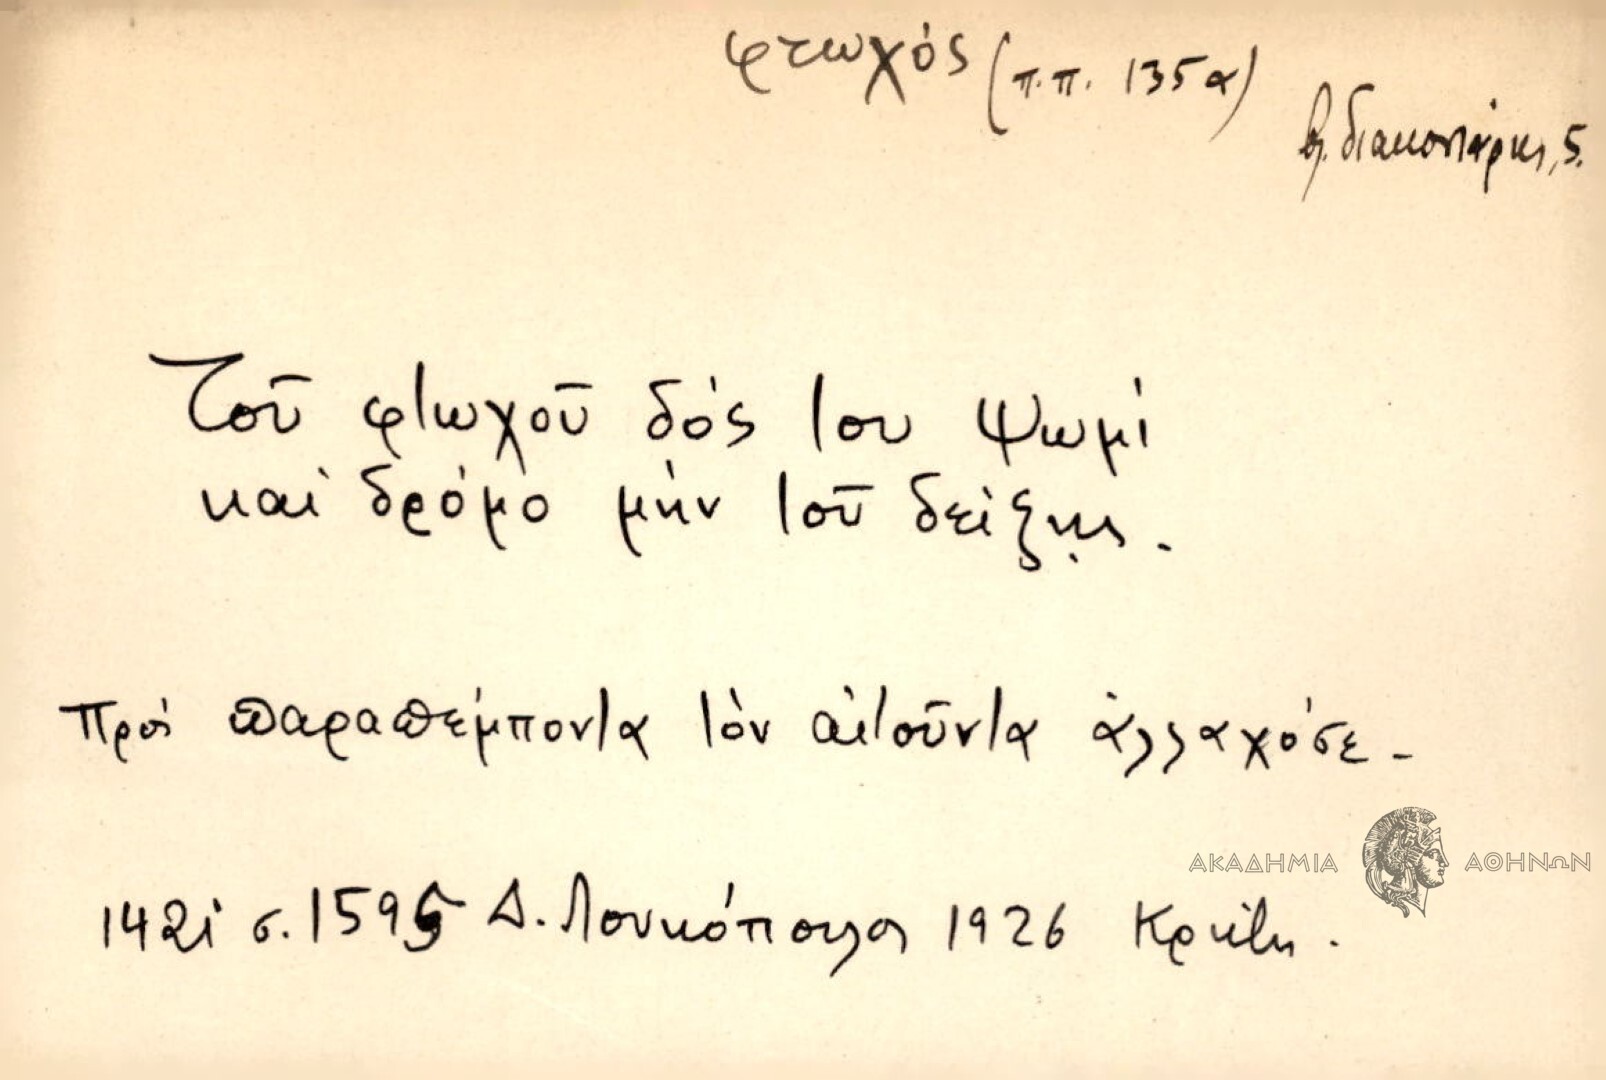 φτωχός (π.π. 135α)
βλ. διακονιάρης, 5.
Τοῦ φτωχοῦ δός του ψωμί
καί δρόμο μήν τοῦ δείξῃς.
Πρός παραπέμποντα τόν αἰτοῦντα ἀλλαχόσε.
1421 σ. 1595 Δ. Λουκόπουλος 1926 Κρήτη.
ΑΚΑΔΗΜΙΑ ΑΘΗΝΩΝ